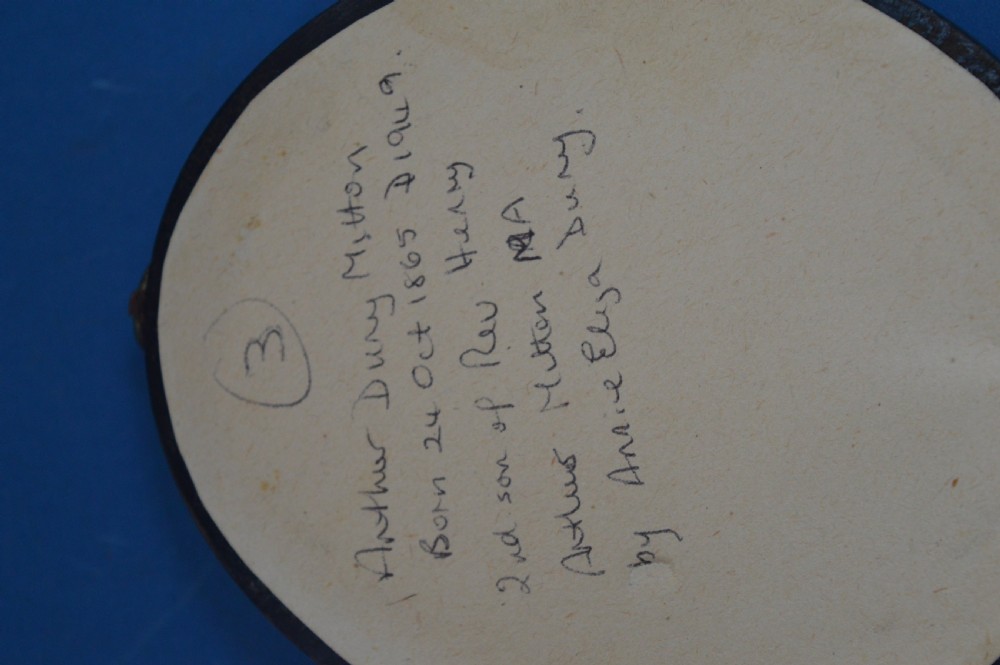 3
Arthur Dury Mitton
Born 24 Oct 1865 D 1949.
2nd son of Rev Henry
Arthur Mitton MA
by Annie Eliza Dury.